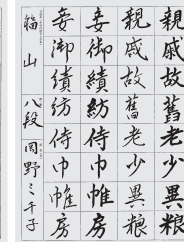 親戚故舊老少異粮
親戚故舊老少異粮
妾御績紡侍巾帷房
妾御績紡侍巾帷房
山
八段